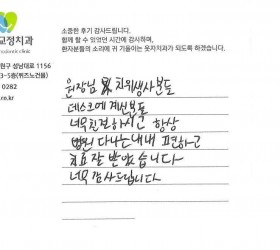 소중한 후기 감사드립니다.
함께 할 수 있었던 시간에 감사하며,
환자분들의 소리에 귀 기울이는 웃자치과가 되도록 하겠습니다.
교정치과
원구 성남대로 1156
3-5층(위즈노건물)
0282
o.kr
원장님 치위생사분들
데스크에 계신분들
너무 친절하시고 항상
병원 다니는내내 편하고
치료 잘 받았습니다
너무 감사드립니다